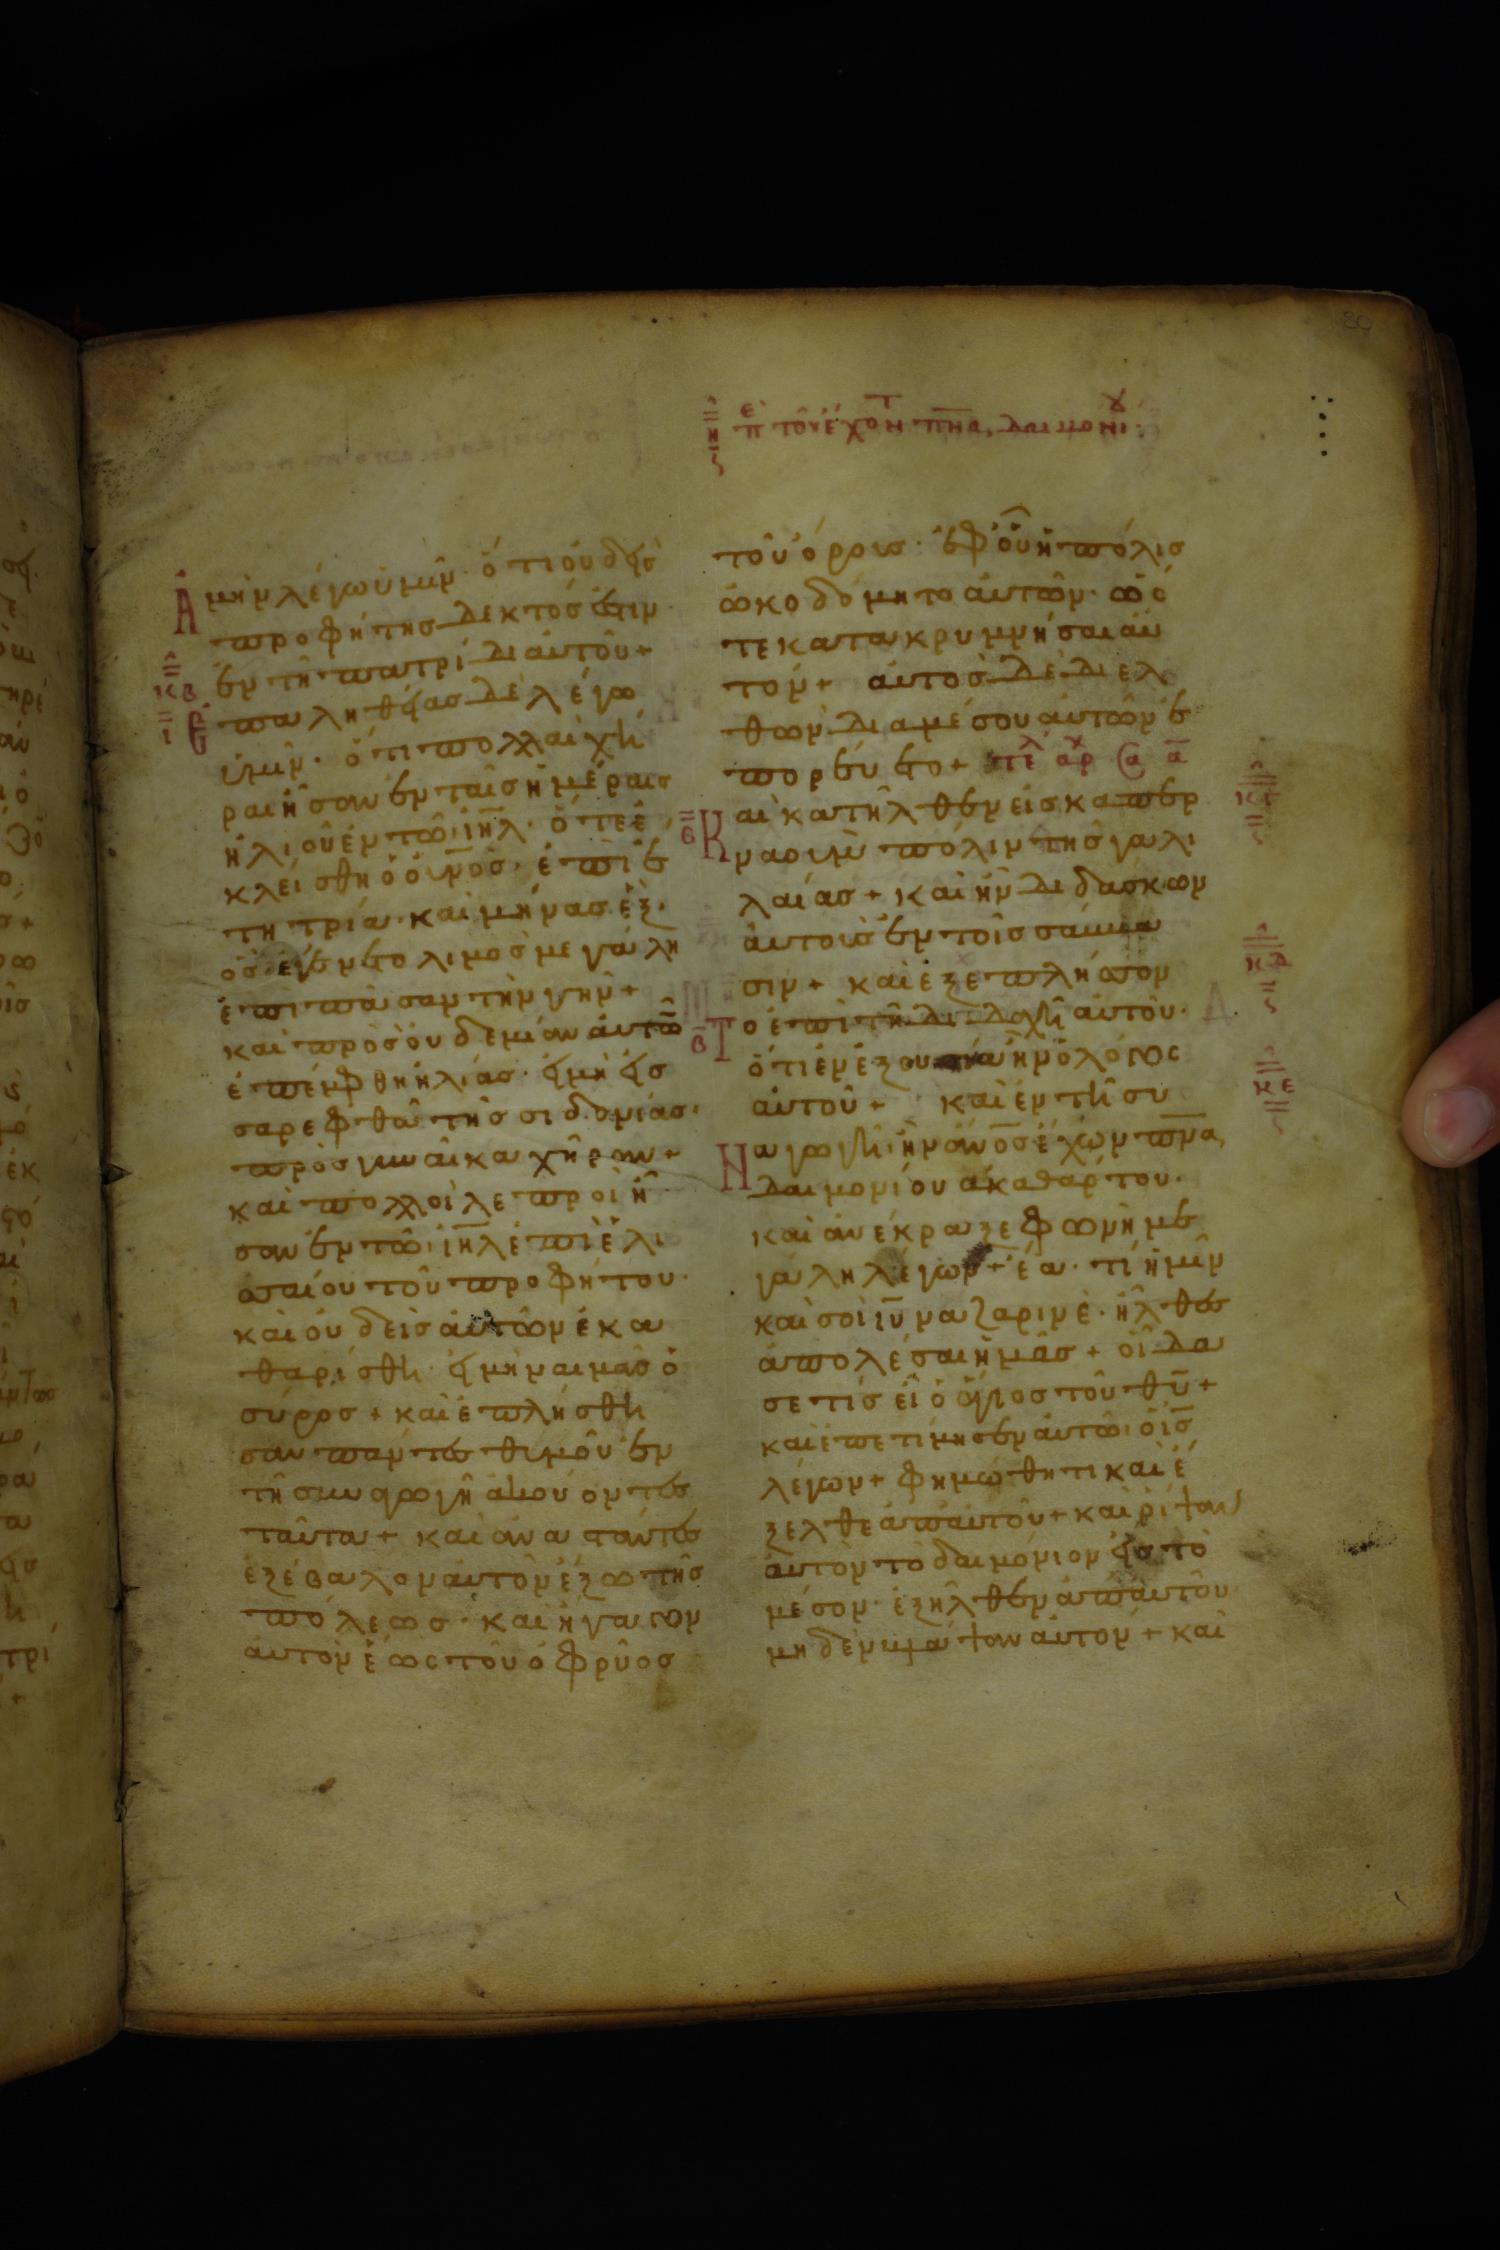 80
η περι του εχοντ πνα δαιμονιου
Ἀμὴν λέγω ὑμῖν· ὅτι οὐδεὶς
προφήτης δεκτός ἐστιν
ἐν τῆ πατρίδι αὐτοῦ+
κβ
ι
Ἐπαληθείας δὲ λέγω
ὑμῖν· ὅτι πολλαὶ χῆ
ραι ἦσαν ἐν ταῖς ἡμέραις
ἠλιοῦ ἐν τῶ ιηλ· ὅτε ἐ
κλείσθη ὁ οὐνος· ἐπὶ ἔ
τη τρία καὶ μῆνας ἕξ·
ὡς ἐγένετο λιμὸς μεγάλη
ἐπὶ πᾶσαν τὴν γῆν+
καὶ πρὸς οὐδεμίαν αὐτῶ
ἐπέμφθη ἠλίας· εἰ μὴ εἰς
σαρεφθὰ τῆς σιδονίας·
πρὸς γυναῖκα χήραν+
καὶ πολλοὶ λεπροὶ ἦ
σαν ἐν τῶ ιηλ ἐπὶ ἐλι
σαίου τοῦ προφήτου·
καὶ οὐδεὶς αὐτῶν ἐκα
θαρίσθη· εἰ μὴ ναιμὰς ὁ
σύρος+ καὶ ἐπλήσθη
σαν πάντες θυμοῦ ἐν
τῆ συναγωγῆ ἀκούοντες
ταῦτα+ καὶ ἀναστάντες
ἐξέβαλον αὐτὸν ἔξω τῆς
πόλεως· καὶ ἤγαγον
αὐτὸν ἕως τοῦ ὀφρῦος
τοῦ ὄρους· ἐφ' οὗ ἡ πόλις
ὠκοδόμητο αὐτῶν· ὥσ
τε κατακρυμνῆσαι αὐ
τόν+ αὐτὸς δὲ διελ
θὼν διὰ μέσου αὐτῶν ἐ
πορεύετο+ τελ αρχ Σα α
β
Καὶ κατῆλθεν εἰς καπερ
ναοὺμ πόλιν τῆς γαλι
λαίας+ καὶ ἦν διδάσκων
αὐτοὺς ἐν τοῖς σάββα
σιν+ καὶ ἐξεπλήσσον
το ἐπὶ τῆ διδαχῆ αὐτοῦ·
ὅτι ἐν ἐξουσία ἦν ὁ λόγος
αὐτοῦ+ καὶ ἐν τῆ συ
Ναγωγῆ· ἦν ἀνος ἔχων πνα
δαιμονίου ἀκαθάρτου·
καὶ ἀνέκραξε φωνὴ με
γάλη λέγων+ ἔα· τί ἡμῖν
καὶ σοὶ ιυ ναζαρινέ· ἦλθες
ἀπολέσαι ἡμᾶς+ οἶδα
σε τίς εἶ ὁ ἅγιος τοῦ θυ+
καὶ ἐπετίμησεν αὐτῶ ὁ ις
λέγων+ φημώθητι καὶ ἔ
ξελθε ἀπ' αὐτοῦ+ καὶ ῥίψαν
αὐτὸν τὸ δαιμόνιον εἰς τὸ
μέσον· ἐξῆλθεν ἀπ' αὐτοῦ
μηδὲν βλάψαν αὐτόν+ καὶ
κγ
κδ
κε